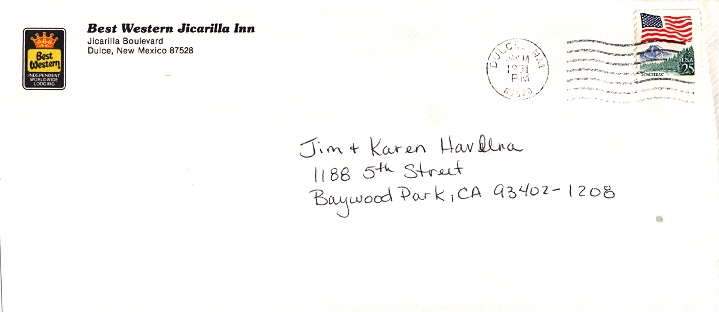 Best Western Jicarilla Inn
Jicarilla Boulevard
Dulce, New Mexico 87528
Best
Western
INDEPENDENT
WORLDWIDE
LODGING
DULCE, NM
PM
87528
USA
25
YOSEMITE
Jim + Karen
1188 5th Street
Baywood Park, CA 93402-1208